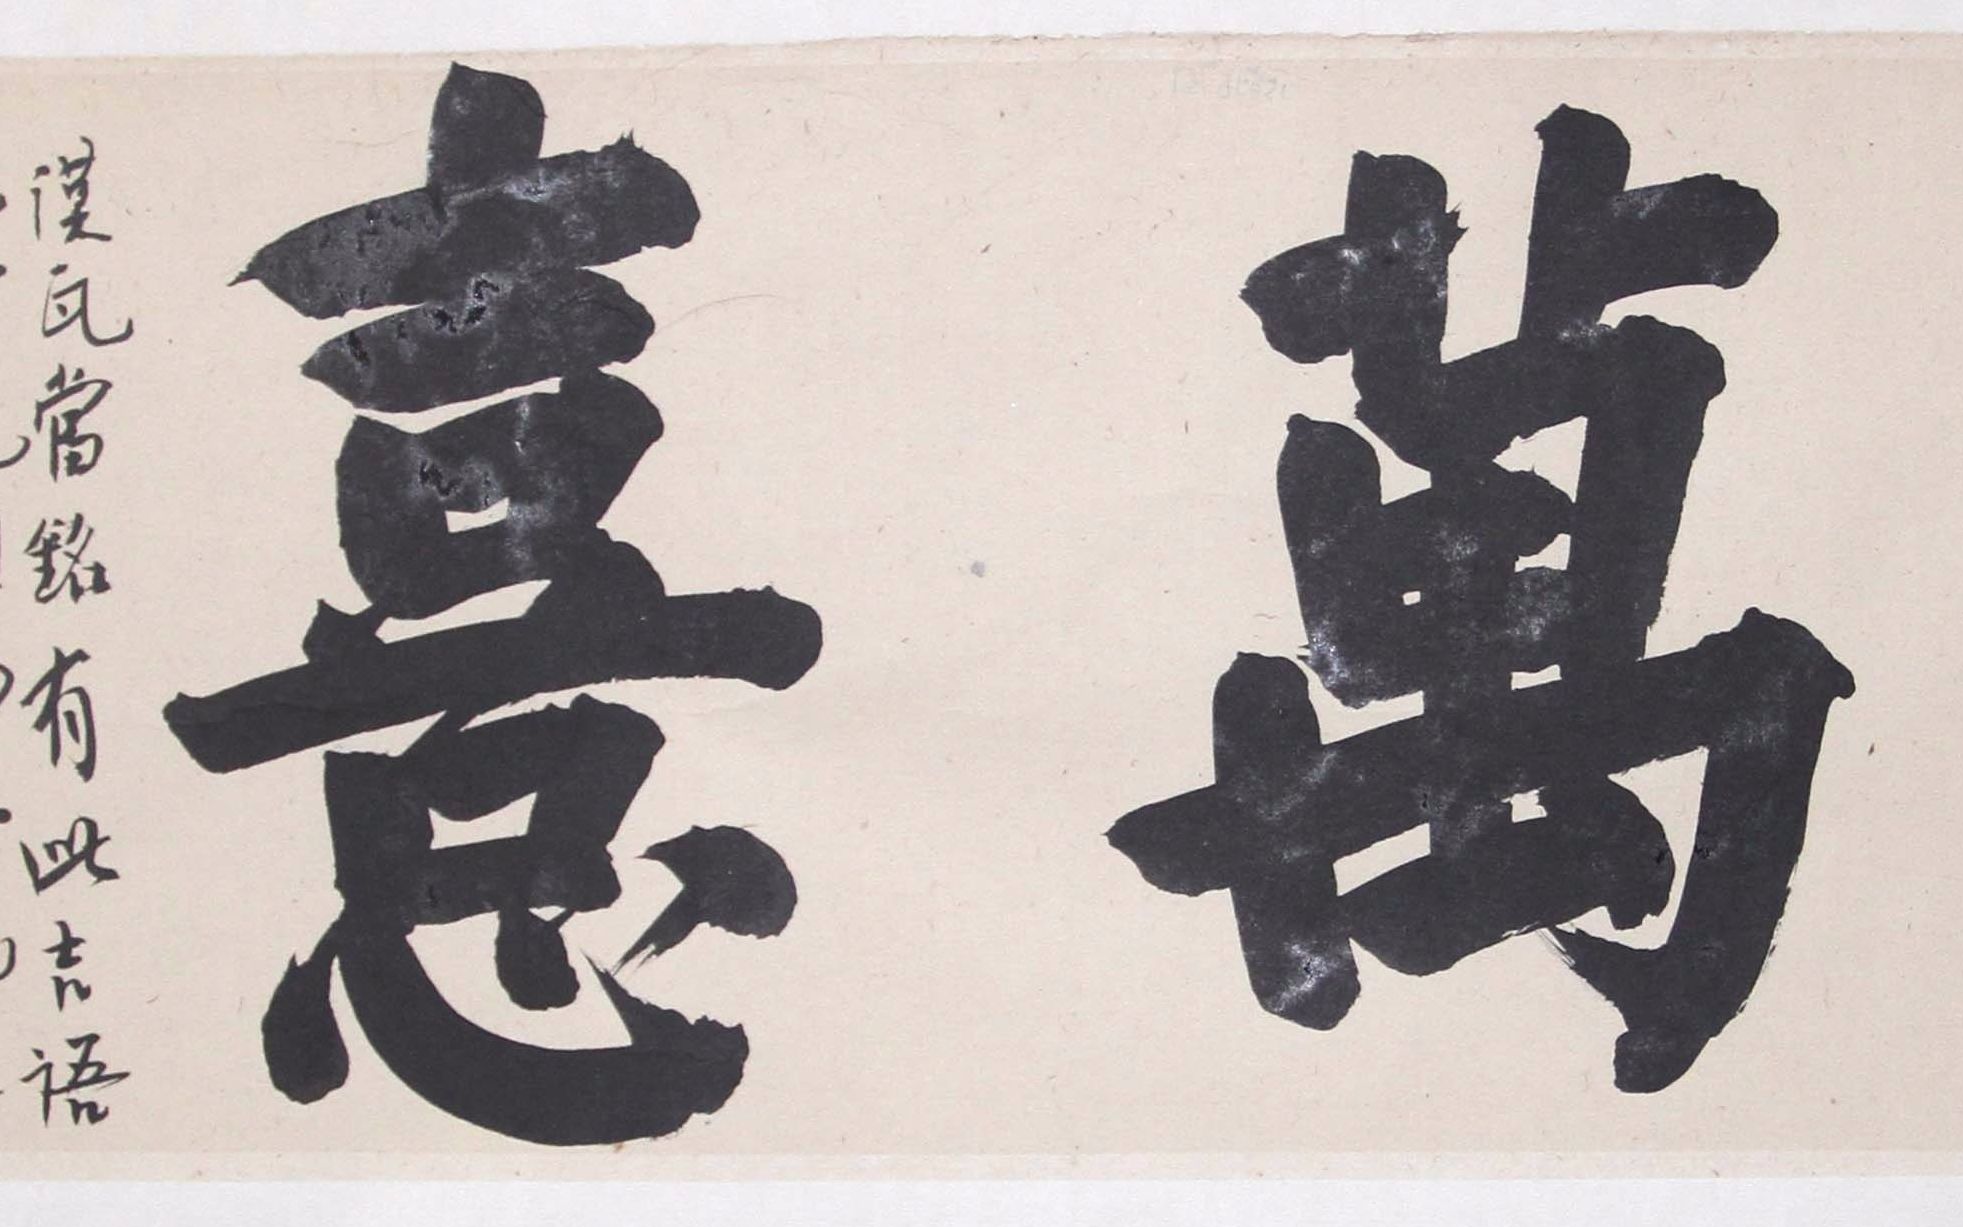 萬憙
漢瓦當銘有此吉語